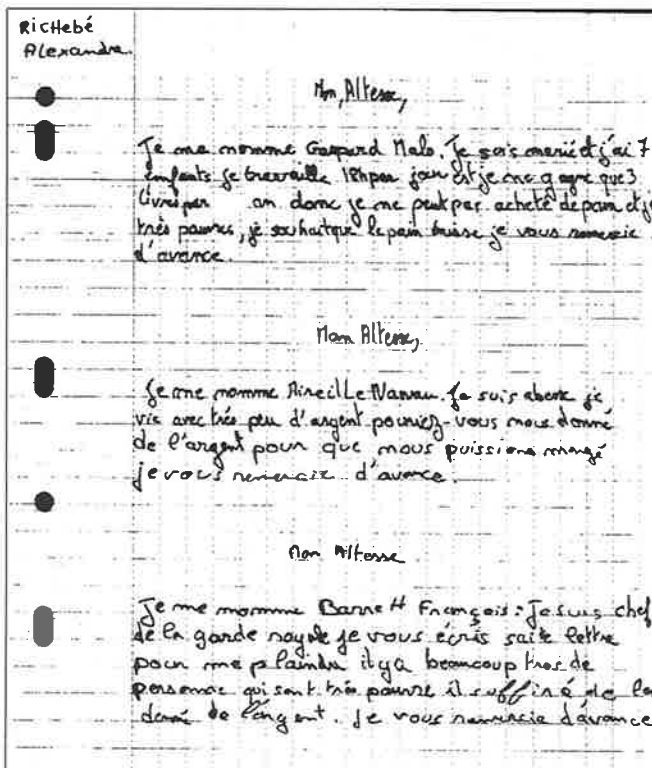 RicHebé
Alexandre.
Mon, Altesse,
Je me nomme Gaspard Malo. Je suis marié et j'ai 7
enfants je travaille 18h par jour et je ne gagne que 3
livres par an donc je ne peut pas acheté de pain et je
très pauvres, je souhaite que le pain baisse je vous remercie
d'avance.
Mon Altesse,
Je me nomme Mireil Le Narvau. Je suis je
vie avec très peu d'argent pouriez-vous nous donné
de l'argent pour que nous puissions mangé
je vous remercie d'avance.
Mon Altesse
Je me nomme Barrett François : Je suis chef
de la garde royale je vous écris saite lettre
pour me plaindre il y a beaucoup trop de
personne qui sont très pauvre il suffiré de leur
donné de l'argent. Je vous remercie d'avance